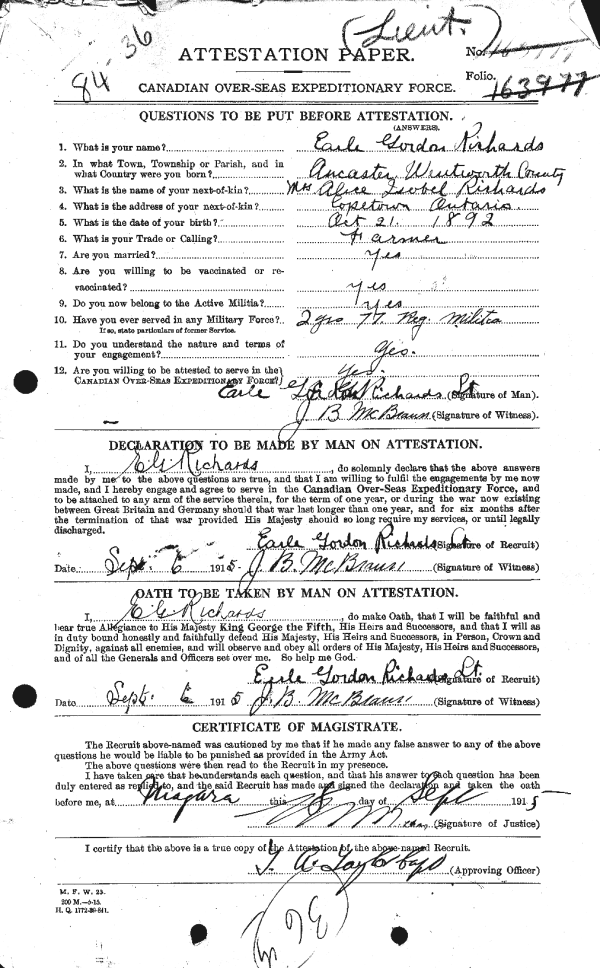 (Lieut.)
84 36
ATTESTATION PAPER.
No.
Folio. 163977
CANADIAN OVER-SEAS EXPEDITIONARY FORCE.
QUESTIONS TO BE PUT BEFORE ATTESTATION.
(ANSWERS).
1. What is your name? Earle Gordon Richards
2. In what Town, Township or Parish, and in
what Country were you born? Ancaster, Wentworth County
3. What is the name of your next-of-kin? Mrs Alice Isobel Richards
4. What is the address of your next-of-kin? Copetown Ontario
5. What is the date of your birth? Oct 21. 1892
6. What is your Trade or Calling? Farmer
7. Are you married? Yes
8. Are you willing to be vaccinated or re-
vaccinated? yes
9. Do you now belong to the Active Militia? Yes
10. Have you ever served in any Military Force? 2 yrs 77. Reg. Militia
If so, state particulars of former Service.
11. Do you understand the nature and terms of
your engagement? Yes.
12. Are you willing to be attested to serve in the
CANADIAN OVER-SEAS EXPEDITIONARY FORCE? Yes.
Earle Gordon Richards Lt. (Signature of Man).
J B McBeaun (Signature of Witness).
DECLARATION TO BE MADE BY MAN ON ATTESTATION.
I, E G Richards, do solemnly declare that the above answers
made by me to the above questions are true, and that I am willing to fulfil the engagements by me now
made, and I hereby engage and agree to serve in the Canadian Over-Seas Expeditionary Force, and
to be attached to any arm of the service therein, for the term of one year, or during the war now existing
between Great Britain and Germany should that war last longer than one year, and for six months after
the termination of that war provided His Majesty should so long require my services, or until legally
discharged.
Earle Gordon Richards Lt. (Signature of Recruit)
Date Sept. 6 1915 J. B. McBeaun (Signature of Witness)
OATH TO BE TAKEN BY MAN ON ATTESTATION.
I, E G Richards, do make Oath, that I will be faithful and
bear true Allegiance to His Majesty King George the Fifth, His Heirs and Successors, and that I will as
in duty bound honestly and faithfully defend His Majesty, His Heirs and Successors, in Person, Crown and
Dignity, against all enemies, and will observe and obey all orders of His Majesty, His Heirs and Successors,
and of all the Generals and Officers set over me. So help me God.
Earle Gordon Richards Lt. (Signature of Recruit)
Date Sept. 6 1915 J. B. McBeaun (Signature of Witness)
CERTIFICATE OF MAGISTRATE.
The Recruit above-named was cautioned by me that if he made any false answer to any of the above
questions he would be liable to be punished as provided in the Army Act.
The above questions were then read to the Recruit in my presence.
I have taken care that he understands each question, and that his answer to each question has been
duly entered as replied to, and the said Recruit has made and signed the declaration and taken the oath
before me, at Niagara this 8 day of Sept 1915
(Signature of Justice)
I certify that the above is a true copy of the Attestation of the above-named Recruit.
Taylor Capt (Approving Officer)
M. F. W. 23.
200 M.—6-15.
H. Q. 1772-39-841.